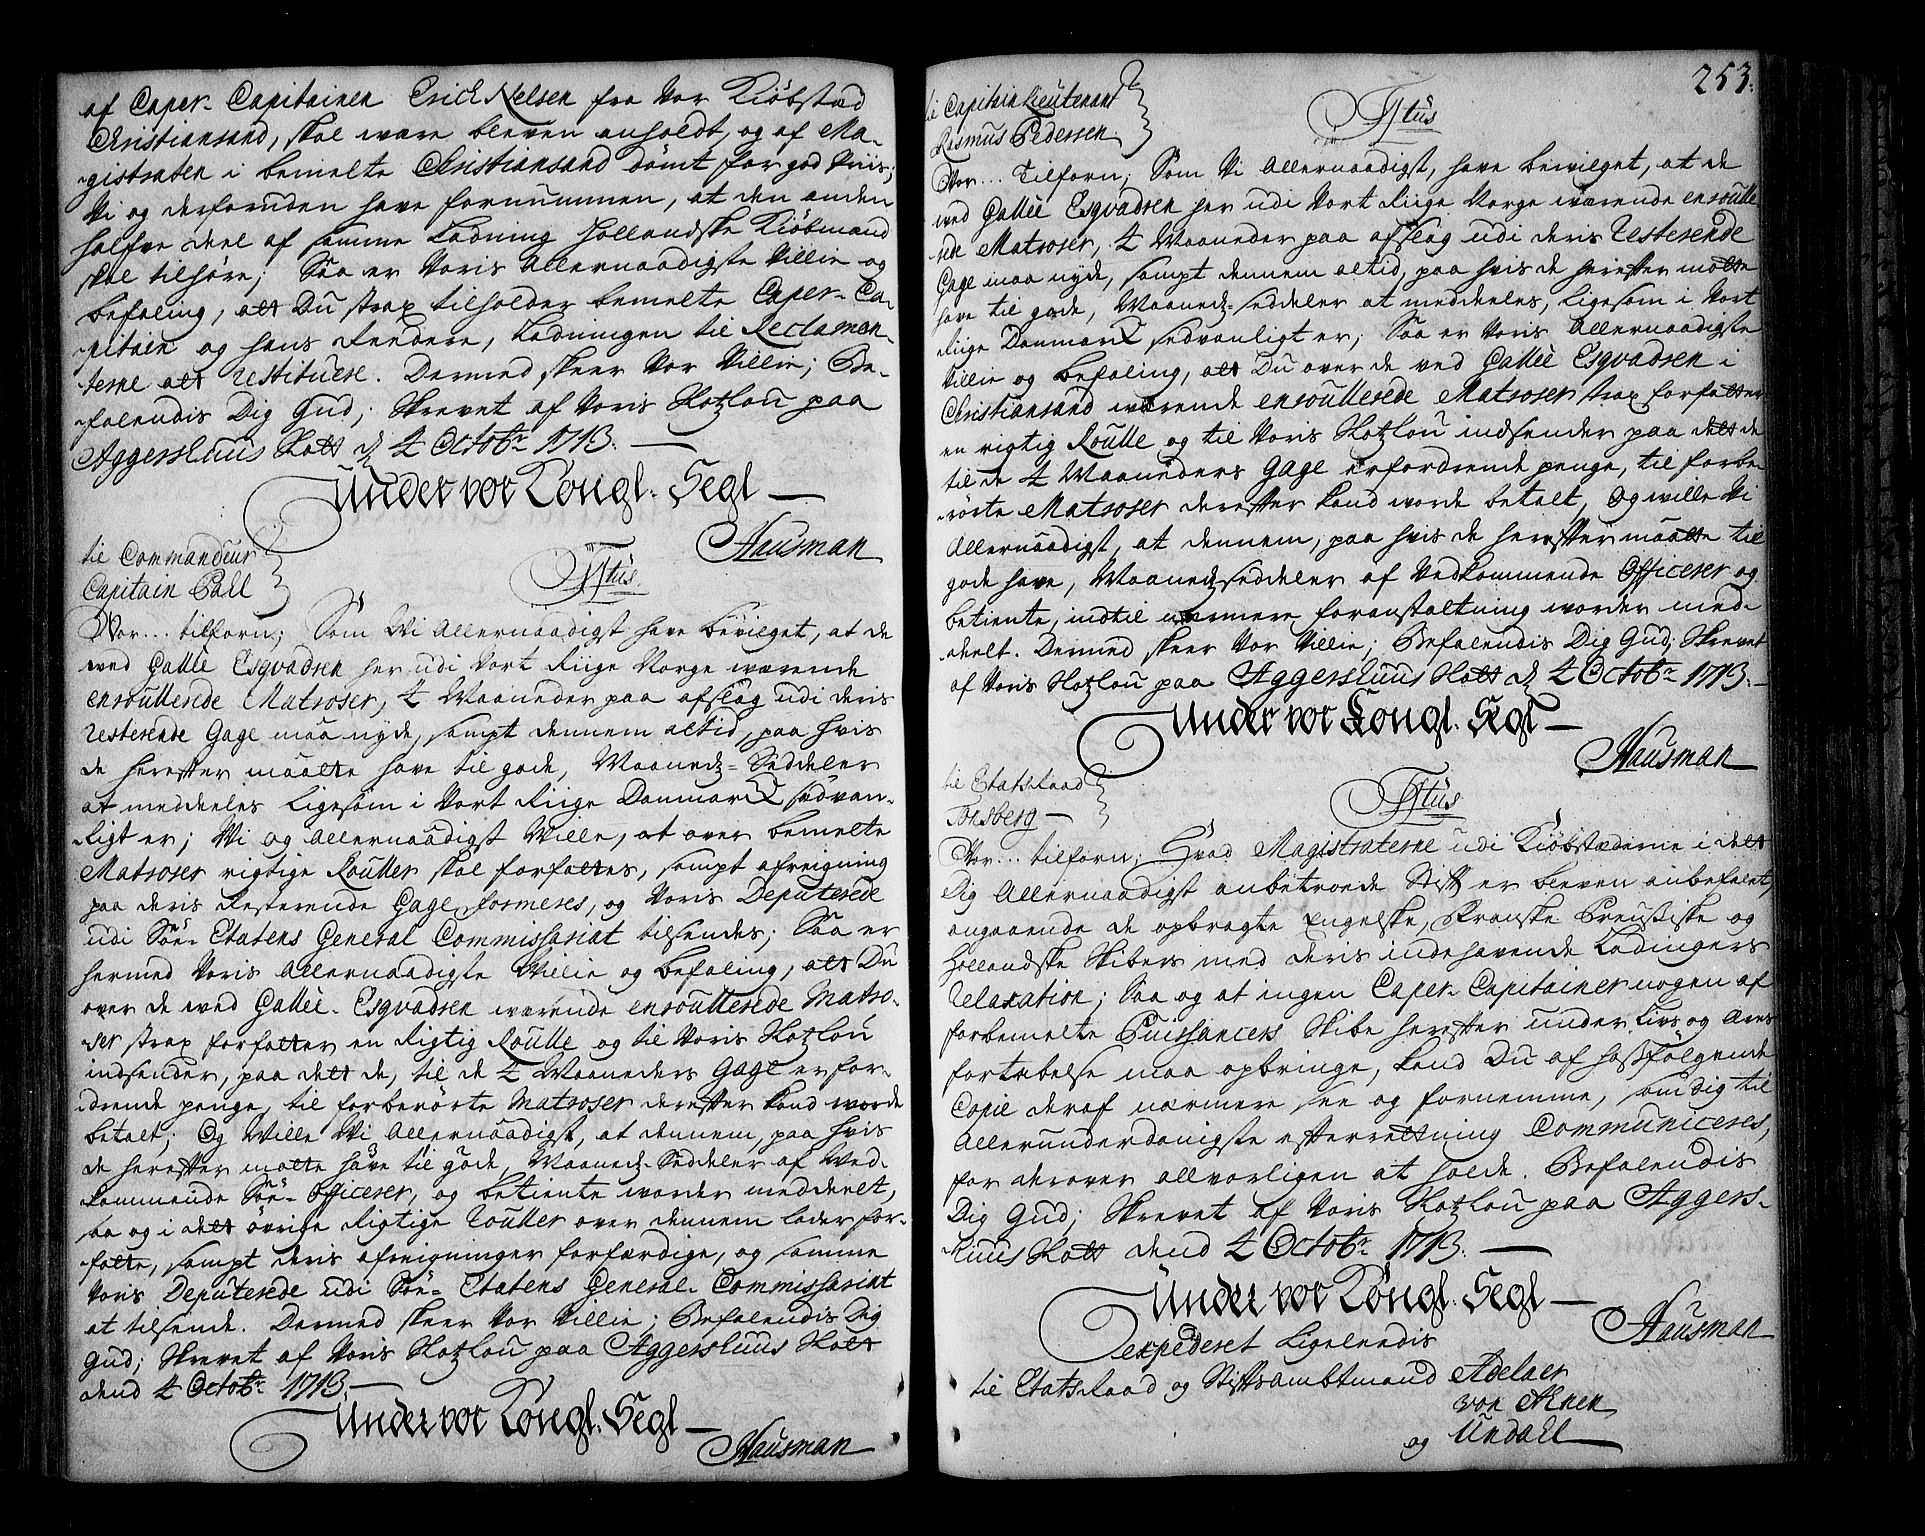 af Caper-Capitainen Erich Nelsen fra Vor Kiöbstæd
Christiansand, skal wære bleven anholdt, og af Ma-
gistraten i bemelte Christiansand dömt for god Priis;
Vi og derforuden have fornummen, at den anden
halfve deel af samme Ladning Hollandske Kiöbmænd
skal tilhöre; Saa er Voris Allernaadigste Villie og
befaling, att Du strax tilholder bemelte Caper-Ca-
pitain og hans Reedere, Ladningen til Reclaman-
terne att restituere. Dermed skeer Vor Villie; Be-
falendis Dig Gud; Skrevet af Voris Slotzlou paa
Aggershuus Slott d 4 Octobr 1713.
Under vor Kongl. Segl
Hausman
til Commandeur
Capitain Pall
Ftus
Vor... tilforn; Som Vi Allernaadigst have bevilget, at de
wed Gallée Esqvadren her udi Vort Riige Norge wærende
enroullerede Matroser, 4 Maaneder paa afslag udi deris
resterende Gage maa nyde, sampt dennem altid, paa hvis
de herefter maatte have til gode, Maanedz-Seddeler
at meddeeles ligesom i Vort Riige Danmarck sedvan-
ligt er; Vi og Allernaadigst Wille, at over bemelte
Matroser rigtige Rouller skal forfattes, sampt afreigning
paa deris Resterende Gage formeres, og Voris Deputerede
udi Söe-Etatens General Commissariat tilsendes; Saa er
hermed Voris Allernaadigste Villie og befaling, att Du
over de wed Gallée-Esqvadren wærende enroullerede Matro-
ser strax forfatter en Rigtig Roulle og til Voris Slotzlou
indsender, paa dett de, til de 4 Maaneders Gage erfor-
drende penge, til forberörte Matroser derefter kand worde
betalt; Og Wille Vi Allernaadigst, at dennem, paa hvis
de herefter matte have til gode, Maanedz-Seddeler af Wed-
kommende Söe-Officerer, og betiente worder meddeelet,
saa og i dett övrige Rigtige Rouller over dennem lader for-
fatte, sampt deris afreigninger forfærdige, og samme
Voris Deputerede udi Söe-Etatens General-Commissariat
at tilsende. Dermed skeer Vor Villie; Befalendis Dig
Gud; Skrevet af Voris Slotzlou paa Aggershuus Slott
dend 4 Octobr 1713.
Under vor Kongl. Segl
Hausman
253.
til Capitain Lieutenant
Rasmus Pedersen
Ftus
Vor... Tilforn; Som Vi Allernaadigst, have bevilget, at de
wed Gallée Esqvadren her udi Vort Riige Norge wærende enroulle
rede Matroser, 4 Maaneder paa afslag udi deris Resterende
Gage maa nyde, sampt dennem altid, paa hvis de herefter matte
have til gode, Maanedz-seddeler at meddeeles, ligesom i Vort
Riige Danmarck sedvanligt er; Saa er Voris Allernaadigste
Villie og befaling, att Du over de wed Gallée Esqvadren i
Christiansand wærende enroullerede Matroser strax forfatter
en rigtig Roulle og til Voris Slotzlou indsender paa dett de
til de 4 Maaneders Gage erfordrende penge, til forbe-
rörte Matroser derefter kand worde betalt, Og wille Vi
Allernaadigst, at dennem, paa hvis de herefter maatte til
gode have, Maanedzseddeler af Vedkommende Officerer og
betiente, indtil nærmere foranstaltning worder med-
deelt. Dermed skeer Vor Villie; Befalendis Dig Gud; Skrevet
af Voris Slotzlou paa Aggershuus Slott d 4 Octobr 1713.
Under vor Kongl. Segl
Hausman
til Etatsraad
Tonsberg
Ftus
Vor... tilforn; Hvad Magistraterne udi Kiöbstæderne i dett
Dig Allernaadigst anbetroede Stift er bleven anbefalet,
angaaende de opbragte Engelske, Franske Preussiske og
Hollandske Skibers med deris indehavende Ladingers
relaxation; Saa og at ingen Caper-Capitainer nogen af
forbemelte Puissancers Skibe herefter under Livs og Æres
fortabelse maa opbringe, kand Du af hosfölgende
Copie deraf nærmere see og fornemme, som dig til
Allerunderdanigste efterrettning Communiceres,
for derover allvorligen at holde. Befalendis
Dig Gud; Skrevet af Voris Slotzlou paa Aggers-
huus Slott dend 4 Octobr 1713.
Under vor Kongl. Segl
Hausman
expederet ligeleedis
til Etatsraad og Stiftsambtmand Adelaer
von Ahnen
og Undall